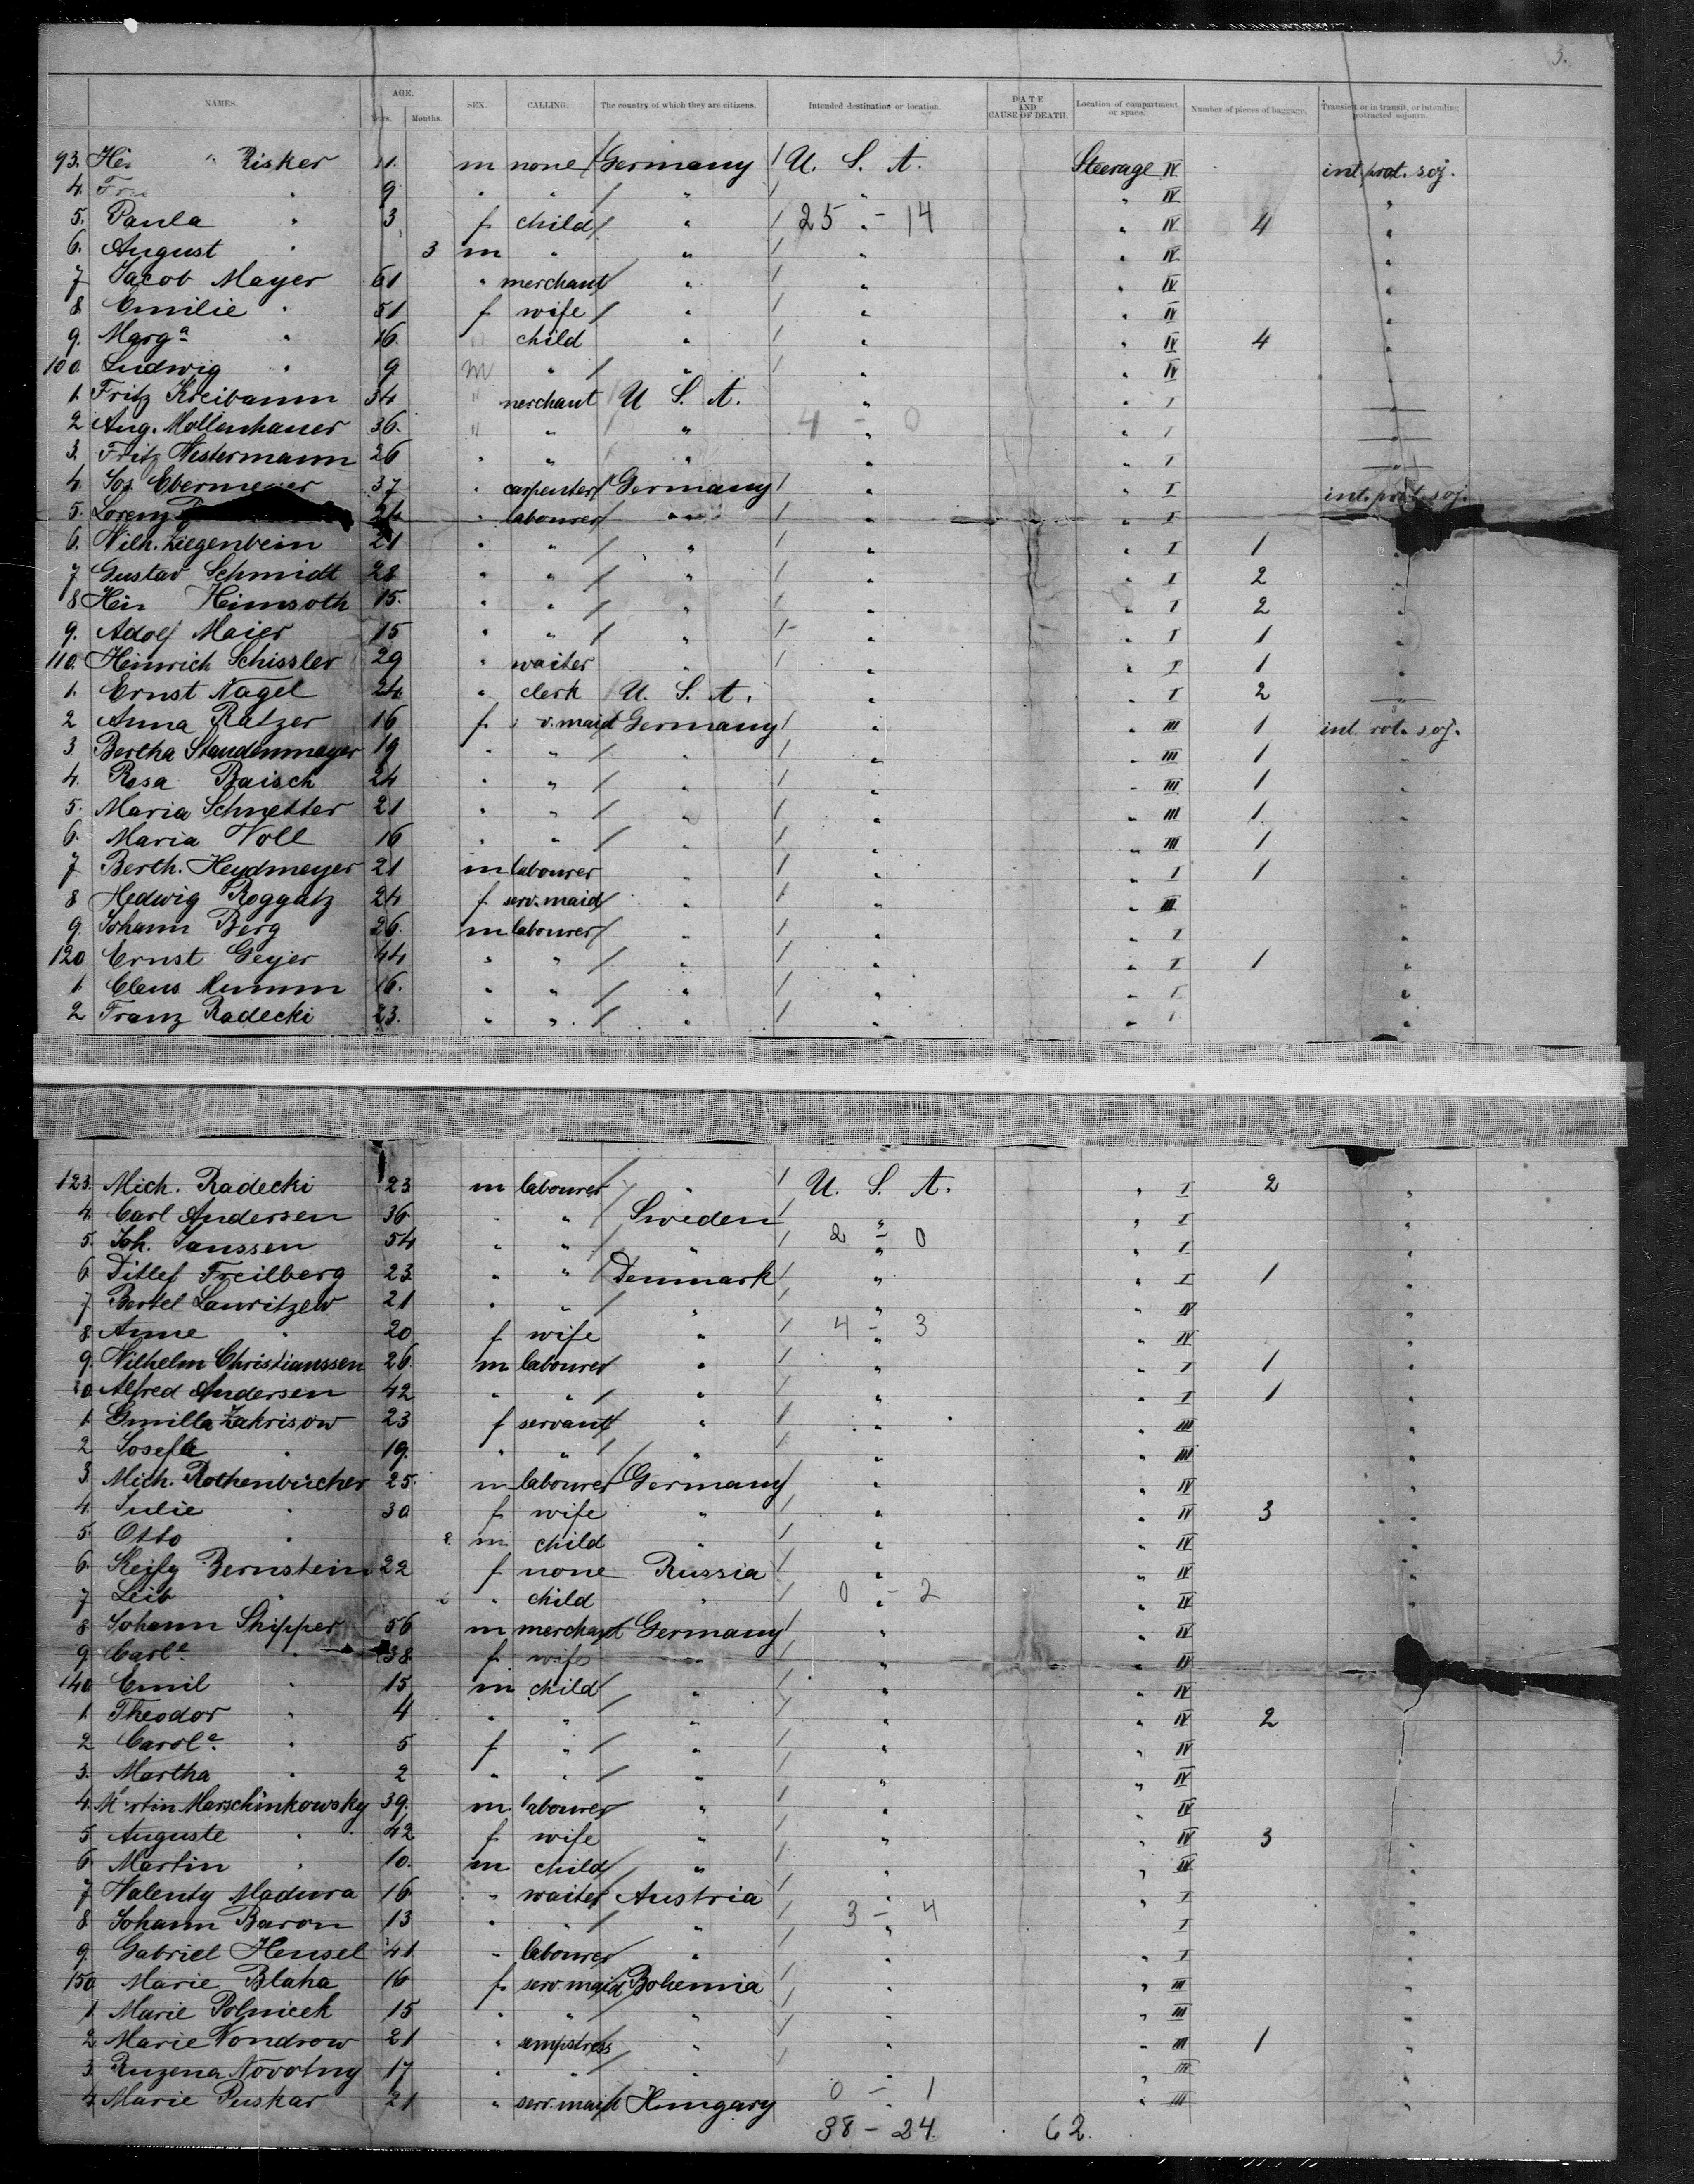 3.
NAMES. AGE. Yrs. Months. SEX. CALLING. The country of which they are citizens. Intended destination or location. DATE AND CAUSE OF DEATH. Location of compartment or space. Number of pieces of baggage. Transient or in transit, or intending protracted sojourn.
93. Hei " Risker 11. m none Germany U. S. A. Steerage IV int. prot. soj.
4. Fri " 9 " " " " " IV "
5. Paula " 3 f child " 25 - 14 " IV 4 "
6. August " 3 m " " " " IV "
7 Jacob Mayer 61 " merchant " " " IV "
8 Emilie " 51 f wife " " " IV "
9. Marga " 16. " child " " " IV 4 "
100. Ludwig " 9 m " " " " IV "
1. Fritz Kreibaum 34 " merchant U. S. A. " " I "
2 Aug. Mollenhauer 36. " " " 4 - 0 " I "
3. Fritz Westermann 26 " " " " " I "
4. Jos. Ebermeyer 37 " carpenter Germany " " I int. prot. soj.
5. Lorenz 24 " labourer " " " I
6. Wilh. Ziegenbein 21 " " " " " I 1 "
7 Gustav Schmidt 28 " " " " " I 2 "
8 Hein Heimsoth 15. " " " " " I 2 "
9. Adolf Maier 15 " " " " " I 1 "
110. Heinrich Schissler 29 " waiter " " " I 1 "
1. Ernst Nagel 24 " clerk U. S. A. " " I 2 "
2 Anna Ratzer 16 f s v. maid Germany " " III 1 int rot. soj.
3 Bertha Staudenmayer 19 " " " " " III 1 "
4. Rosa Baisch 24 " " " " " III 1 "
5. Maria Schnetter 21 " " " " " III 1. "
6. Maria Voll 16 " " " " " III 1
7 Berth. Heydmeyer 21 m labourer " " " I 1 "
8 Hedwig Roggatz 24 f serv. maid " " " III "
9. Johann Berg 26. m labourer " " " I "
120 Ernst Geyer 44 " " " " " I 1 "
1. Claus Mumm 16. " " " " " I "
2 Franz Radecki 23. " " " " " I "
123. Mich. Radecki 23 m labourer " U. S. A. " I 2 "
4. Carl Andersen 36. " " Sweden " " I "
5. Joh. Janssen 54 " " " 2 - 0 " I "
6 Ditlef Freilberg 23 " " Denmark " " I 1 "
7 Bertel Lauritzew 21 " " " " " IV "
8 Anne " 20 f wife " 4 - 3 " IV "
9. Wilhelm Christianssen 26. m labourer " " " I 1 "
0. Alfred Andersen 42 " " " " " I 1 "
1. Gunilla Zakrisow 23 f servant " " " III "
2 Josefa " 19. " " " " " III "
3. Mich. Rothenbücher 25. m labourer Germany " " IV "
4. Julie " 30 f wife " " " IV 3 "
5. Otto " m child " " " IV "
6. Bernstein 22 f none Russia " " IV "
7 Leib " " child " 0 - 2 " IV "
8 Johann Shipper 56 m merchant Germany " " IV
9. Carle " 38 f. wife " " " IV
140 Emil " 15 m child " " " IV
1. Theodor " 4 " " " " " IV 2
2 Carole. " 5 f " " " " IV
3. Martha " 2 " " " " " IV
4. M rtin Marschinkowsky 39. m labourer " " " IV
5 Auguste " 42 f wife " " " IV 3 "
6. Martin " 10. m child " " " IV "
7 Walenty Madura 16 " waiter Austria " " I "
8 Johann Baron 13 " " " 3 - 4 " I "
9. Gabriel Hensel 41 " labourer " " " I "
150 Marie Blaha 16 f serv. maid Bohemia " " III "
1 Marie Polnicek 15 " " " " " III "
2 Marie Vondrow 21 " sempstress " " " III 1 "
3 Ruzena Novotny 17 " " " " " III "
4 Marie Puskar 21 " serv. maid Hungary 0 - 1 " III "
38 - 24. 62.